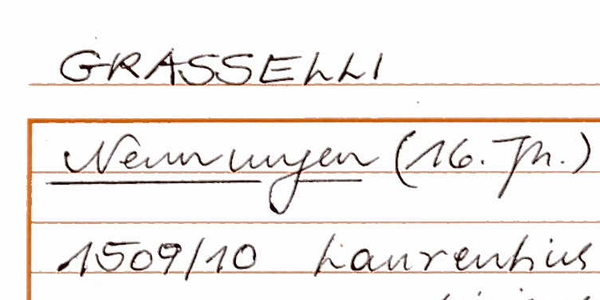 GRASSELLI
Nennungen (16. Jh.)
1509/10 Laurentius